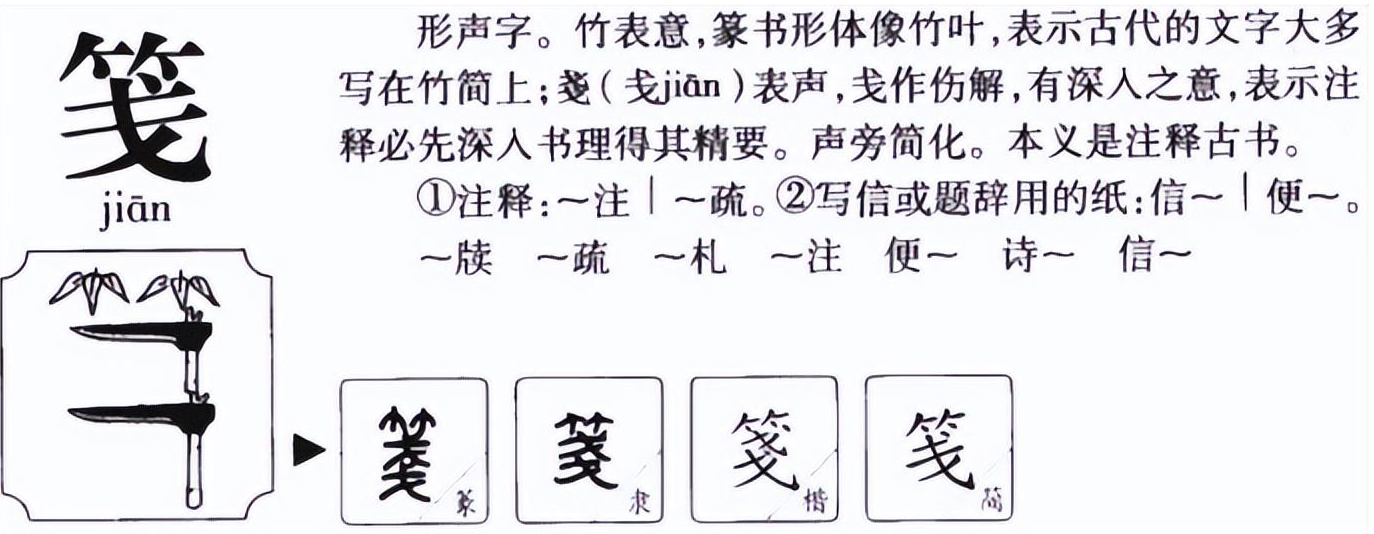 笺
jiān
形声字。竹表意,篆书形体像竹叶,表示古代的文字大多
写在竹简上;戔(戋jiān)表声,戋作伤解,有深入之意,表示注
释必先深入书理得其精要。声旁简化。本义是注释古书。
①注释:~注|~疏。②写信或题辞用的纸:信~|便~。
~牍 ~疏 ~札 ~注 便~ 诗~ 信~
箋 篆
箋 隶
箋 楷
笺 简